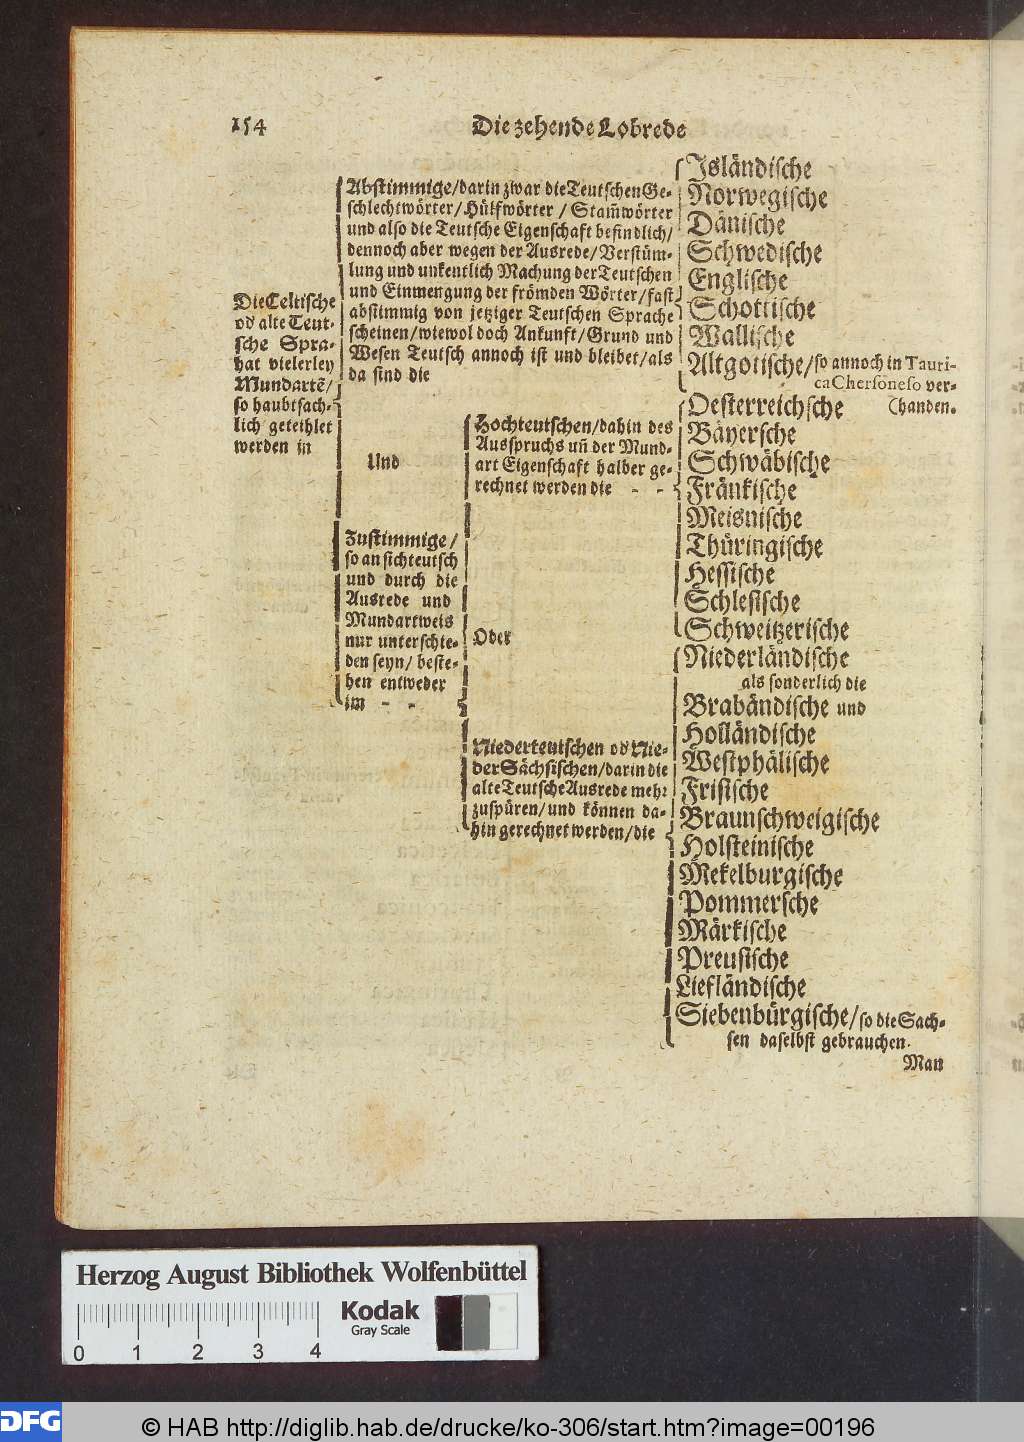 154
Die zehende Lobrede
Die Celtische
od' alte Teut-
sche Spra-
hat vielerley
Mundartẽ/
so haubtsach-
lich geteihlet
werden in
Abstimmige/darin zwar die Teutschen Ge-
schlechtwörter/Hülfwörter / Stam̃wörter
und also die Teutsche Eigenschaft befindlich/
dennoch aber wegen der Ausrede/Verstüm-
lung und unkentlich Machung der Teutschen
und Einmengung der frömden Wörter/fast
abstimmig von jetziger Teutschen Sprache
scheinen/wiewol doch Ankunft/Grund und
Wesen Teutsch annoch ist und bleibet/als
da sind die
Jsländische
Norwegische
Dänische
Schwedische
Englische
Schottische
Wallische
Altgotische/so annoch in Tauri-
ca Chersoneso ver-
(handen.
Und
Zustimmige/
so an sich teutsch
und durch die
Ausrede und
Mundartweis
nur unterschie-
den seyn/ beste-
hen entweder
im - -
Hochteutschen/dahin des
Ausspruchs uñ der Mund-
art Eigenschaft halber ge-
rechnet werden die - -
Oesterreichsche
Bäyersche
Schwäbische
Fränkische
Meisnische
Thüringische
Hessische
Schlesische
Schweitzerische
Oder
Niederteutschen od' Nie-
der Sächsischen/darin die
alte Teutsche Ausrede mehr
zuspüren/und können da-
hin gerechnet werden/die
Niederländische
als sonderlich die
Brabändische und
Holländische
Westphälische
Frisische
Braunschweigische
Holsteinische
Mekelburgische
Pommersche
Märkische
Preusische
Liefländische
Siebenbürgische/so die Sach-
sen daselbst gebrauchen.
Man
Herzog August Bibliothek Wolfenbüttel
Kodak
Gray Scale
0 1 2 3 4
DFG
© HAB http://diglib.hab.de/drucke/ko-306/start.htm?image=00196